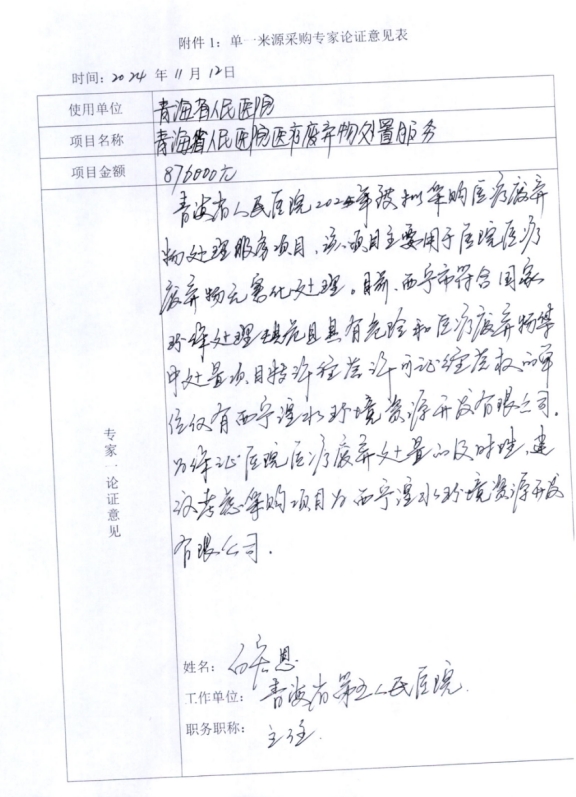 附件1：单一来源采购专家论证意见表
时间：2024 年 11 月 12日
使用单位 青海省人民医院
项目名称 青海省人民医院医疗废弃物处置服务
项目金额 876000元
专家一论证意见
青海省人民医院2025年度拟采购医疗废弃
物处理服务项目，该项目主要用于医院医疗
废弃物无害化处理。目前，西宁市符合国家
环保处理规范且具有危险和医疗废弃物集
中处置项目特许经营许可证经营权的单
位仅有西宁湟水环境资源开发有限公司，
为保证医院医疗废弃处置的及时性，建
议考虑采购项目为西宁湟水环境资源开发
有限公司。
姓名：
工作单位：青海省第五人民医院
职务职称：主任